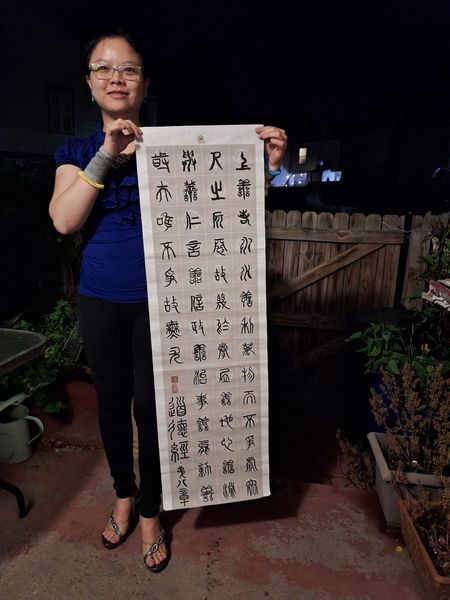 上善若水水善利萬物而不爭處眾
人之所惡故幾於道居善地心善淵
與善仁言善信政善治事善能動善
時夫唯不爭故無尤
道德經
第八章